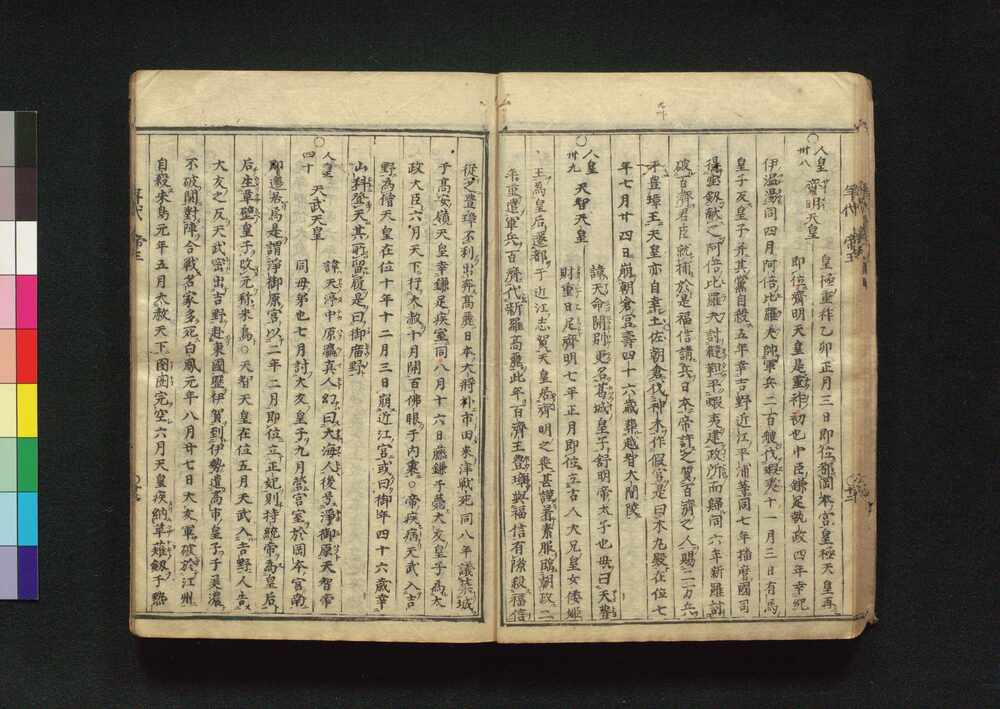 人皇 齊明天皇
卅八
皇極重祚乙卯正月三日即位都岡本宮皇極天皇再
即位齊明天皇是重祚初也中臣鎌足執政四年幸紀
伊温湯同四月阿倍比羅夫帥軍兵二百艘伐蝦夷十一月三日有馬
皇子反皇子并其黨自殺五年幸吉野近江平浦等同七年播磨國司
得宝剱献之阿倍比羅夫討蝦夷建政所而歸同六年新羅
破百濟君臣就捕於是福信請兵日本帝許之質百濟之人賜二万兵
豊璋王天皇亦自幸土佐朝倉伐神木作假宮是曰木丸殿在位七
年七月廿四日崩朝倉宮壽四十六歳葬越智大間陵
人皇 天智天皇
卅九
諱天命開別更名葛城皇子舒明帝太子也母曰天豊
財重日足齊明七年正月即位立古人大兄皇女倭姫
王為皇后遷都于近江志賀天皇居齊明之喪甚謹著素服臨朝政二
年重遣軍兵百濟代新羅高麗此年百濟王豊璋與福信有隙殺福信
從之豊璋不利出奔高麗日本大將朴市田来津戦死同八年議築城
于高安嶺天皇幸鎌足疾室同八月十六日藤鎌子薨大友皇子為太
政大臣六月天下行大赦十月開百佛眼于内裏○帝疾病天武入吉
野為僧天皇在位十年十二月三日崩近江宮或曰御年四十六歳幸
山科登天其所留履是曰御廣野
人皇 天武天皇
四十
諱天渟中原瀛真人幼曰大海人後号淨御原天智帝
同母弟也七月討大友皇子九月営宮室於岡本宮南
即遷為是謂淨御原宮以二年二月即位立正妃則持統帝為皇后
后生草壁皇子改元称朱鳥○天智天皇在位五月天武入吉野人告
大友之反天武密出吉野赴東國歴伊賀到伊勢遣高市皇子于美濃
不破関對陣合戦名家多死白鳳元年八月廿七日大友軍破於江州
自殺朱鳥元年五月大赦天下囹圄完空六月天皇疾納草薙剱于熱